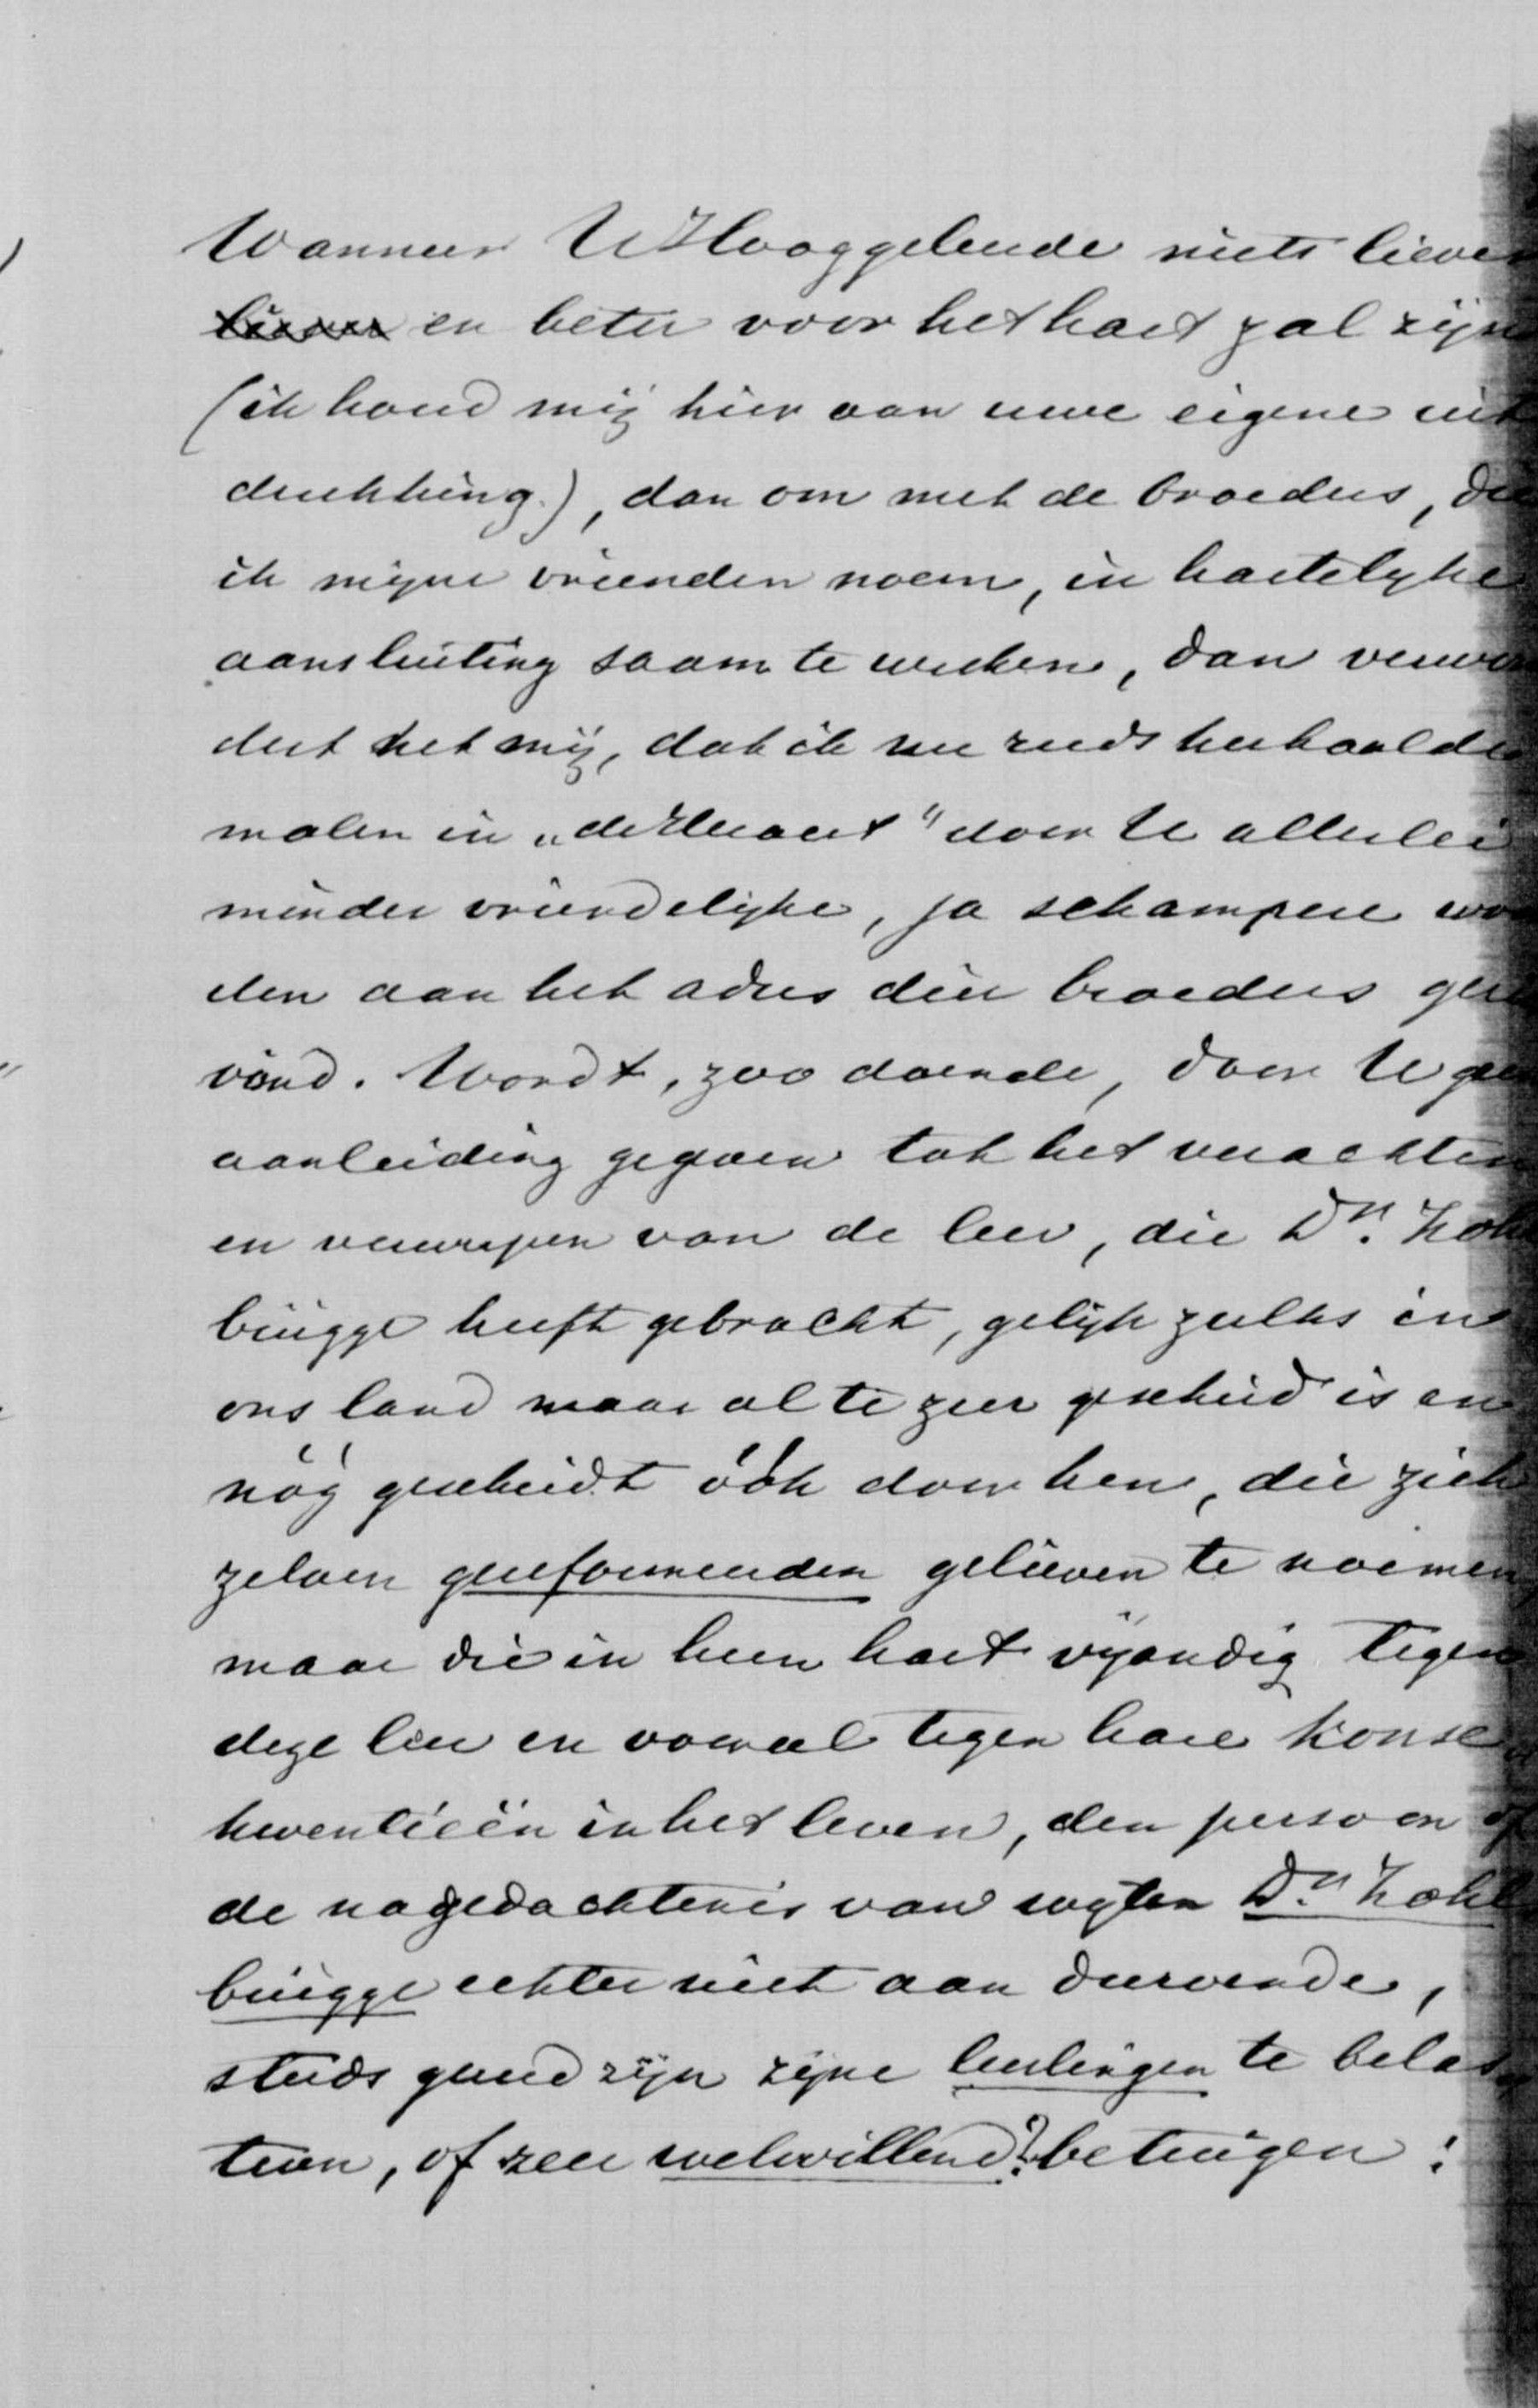 Wanneer UHooggeleerde niets liever
liever en beter voor het hart zal zijn
(ik houd mij hier aan uwe eigene uit
drukking.), dan om met de broeders, die
ik mijne vrienden noem, in hartelijke
aansluiting saam te werken, dan verwon
dert het mij, dat ik nu reeds herhaalde
malen in „de Heraut" door U allerlei
minder vriendelijke, ja schampere woor
den aan het adres dier broeders
vind. Wordt, zoo doende, door U
aanleiding gegeven tot het verachten
en verwerpen van de leer, die Dr. Kohl
brügge heeft gebracht, gelijk zulks in
ons land maar al te zeer geschied is en
nóg geschiedt óók door hen, die zich
zelven gereformeerden gelieven te noemen,
maar die in hun hart vijandig tegen
deze leer en vooral tegen hare konse
kwentieën in het leven, den persoon of
de nagedachtenis van wijlen Dr. Kohl
brügge echter niet aan durvende,
steeds gereed zijn zijne leerlingen te belas
teren, of zeer welwillend? betuigen: